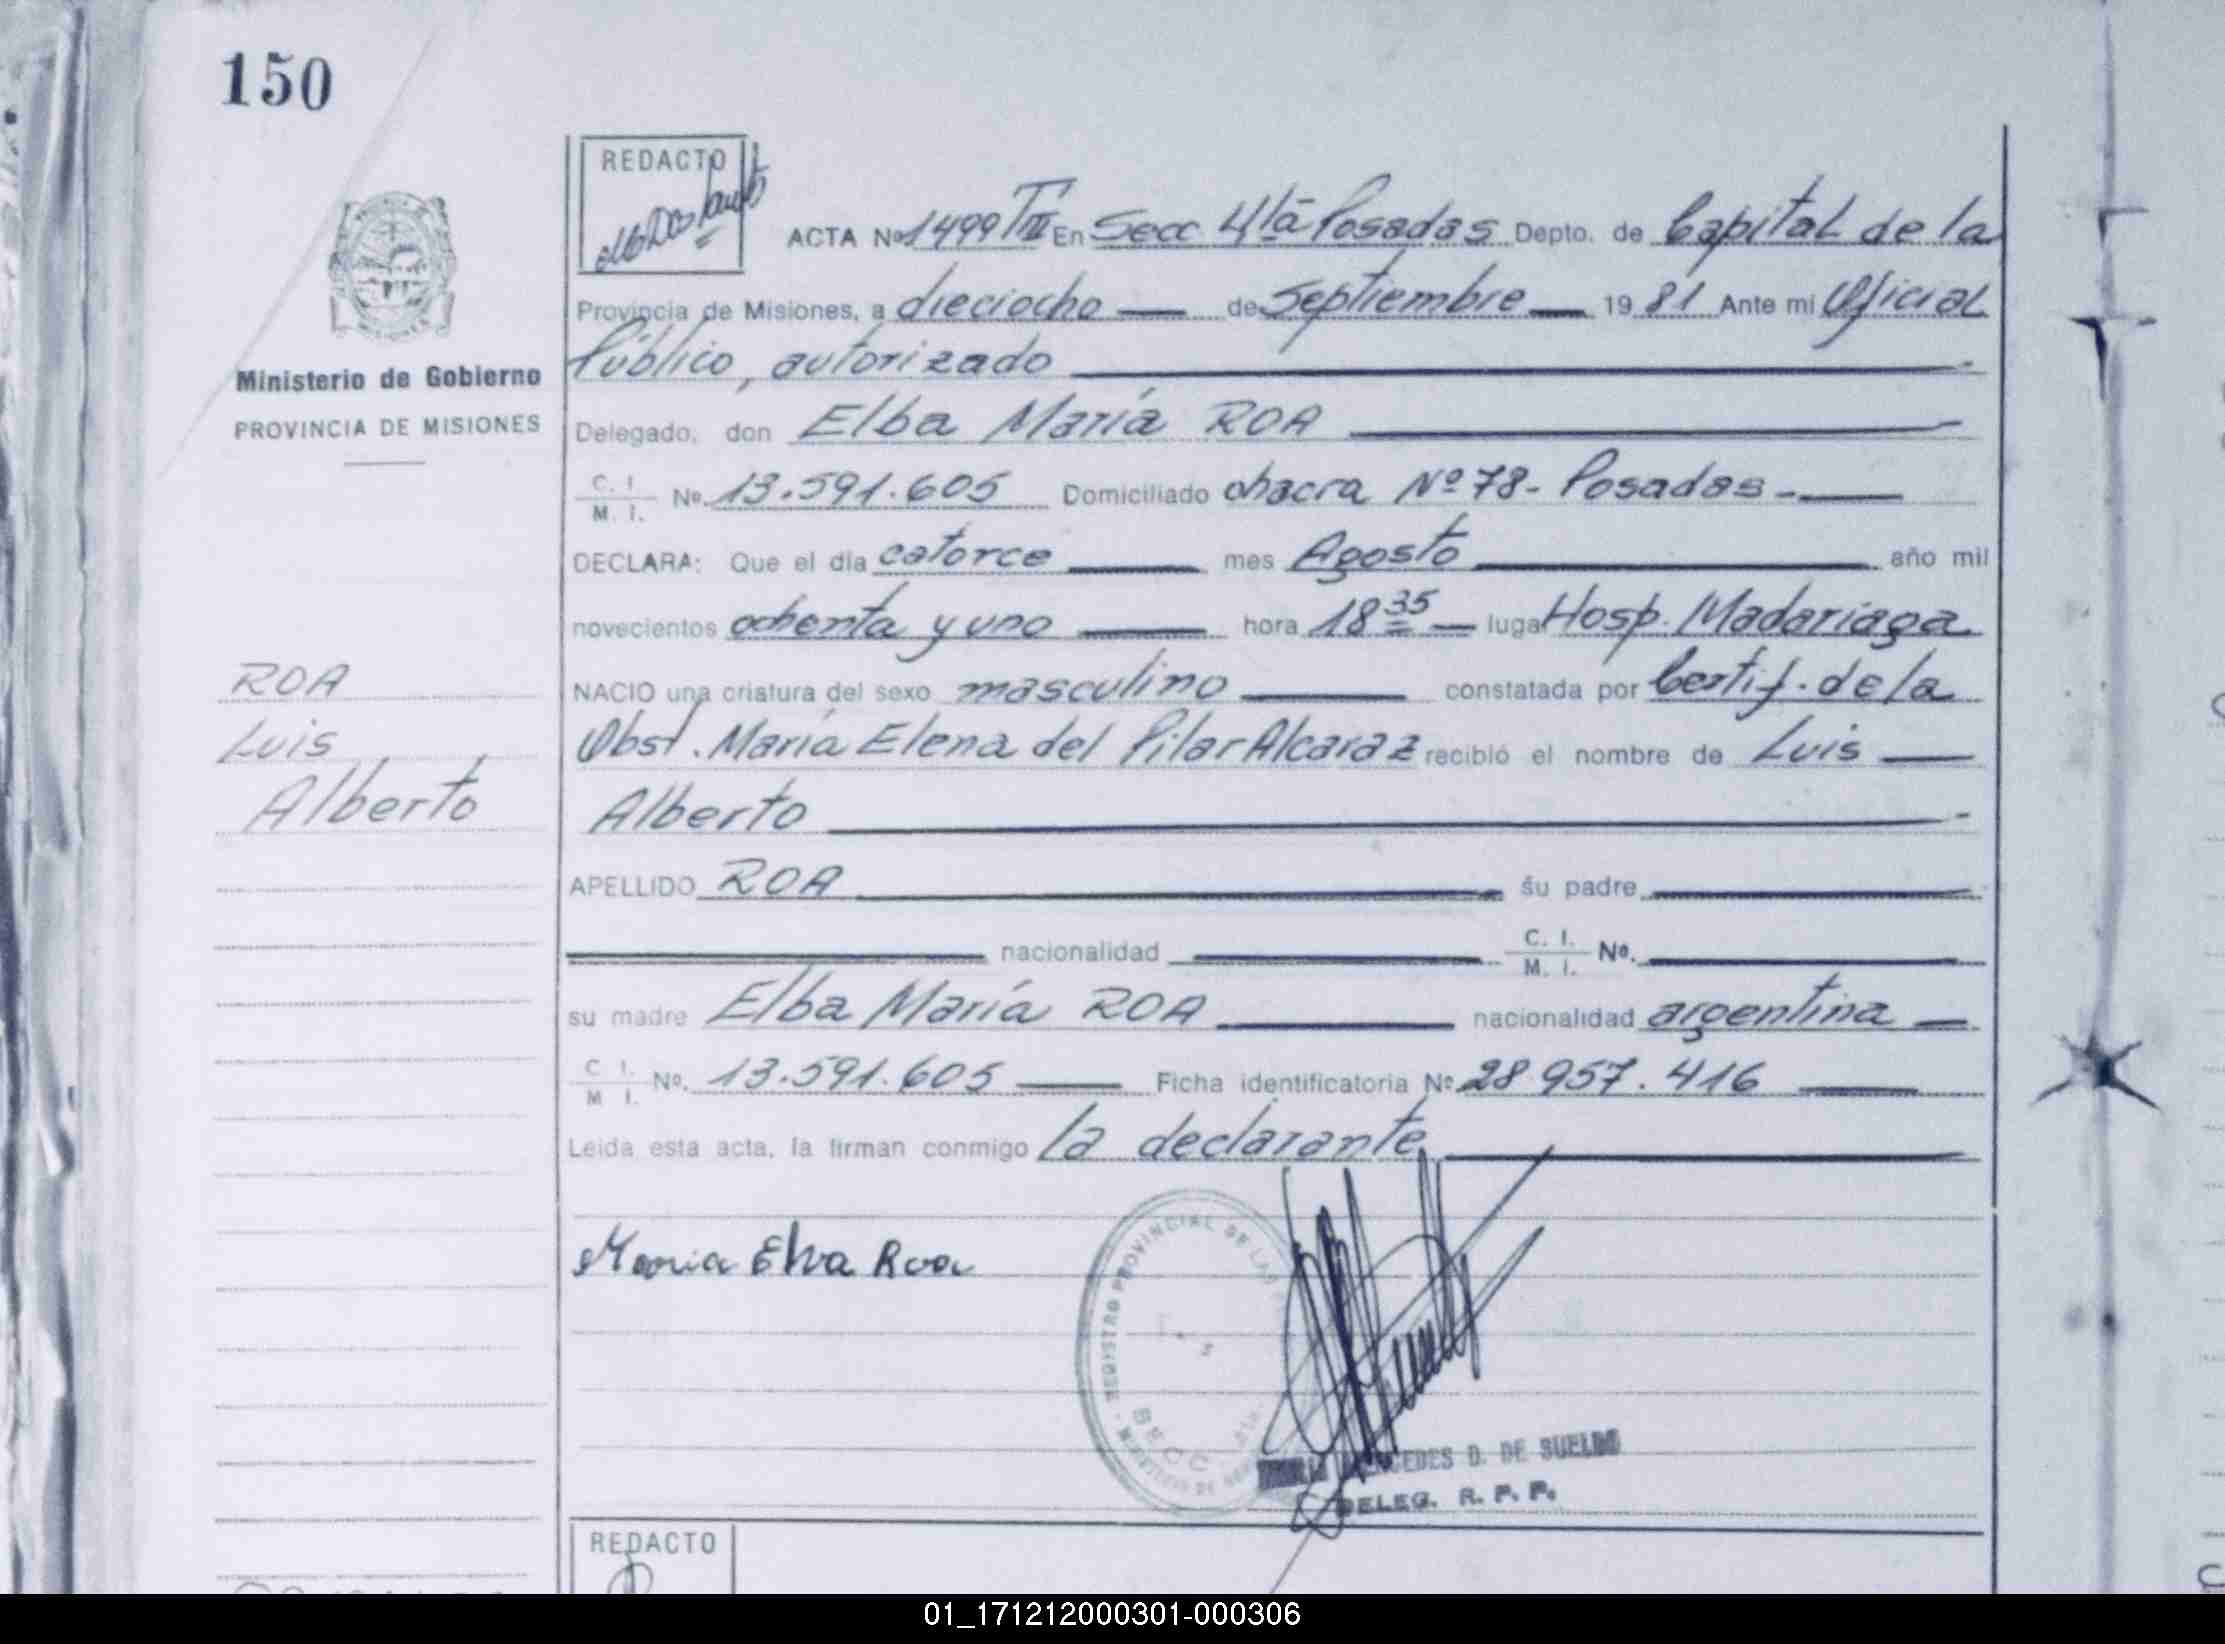 150
REDACTO
ACTA Nº 1499 TIII En Secc 4ta Posadas Depto. de Capital de la
Provincia de Misiones, a dieciocho — de Septiembre — 19 81 Ante mi Oficial
Público, autorizado
Ministerio de Gobierno
PROVINCIA DE MISIONES
Delegado, don Elba María ROA
C. I. M. I. Nº. 13.591.605 Domiciliado chacra Nº 78- Posadas-
DECLARA: Que el día catorce mes Agosto año mil
novecientos ochenta y uno hora 18 35 lugar Hosp. Madariaga
ROA
Luis
Alberto
NACIO una criatura del sexo masculino constatada por Certif. de la
Obst. María Elena del Pilar Alcaraz recibió el nombre de Luis
Alberto
APELLIDO ROA su padre
nacionalidad C. I. M. I. Nº.
su madre Elba María ROA nacionalidad argentina
C. I. M. I. Nº. 13.591.605 Ficha identificatoria Nº 28.957.416
Leida esta acta, la firman conmigo la declarante
Maria Elva Roa
REGISTRO PROVINCIAL DE LAS
SECC
MERCEDES D. DE SUELDO
DELEG. R. P. P.
REDACTO
01_171212000301-000306